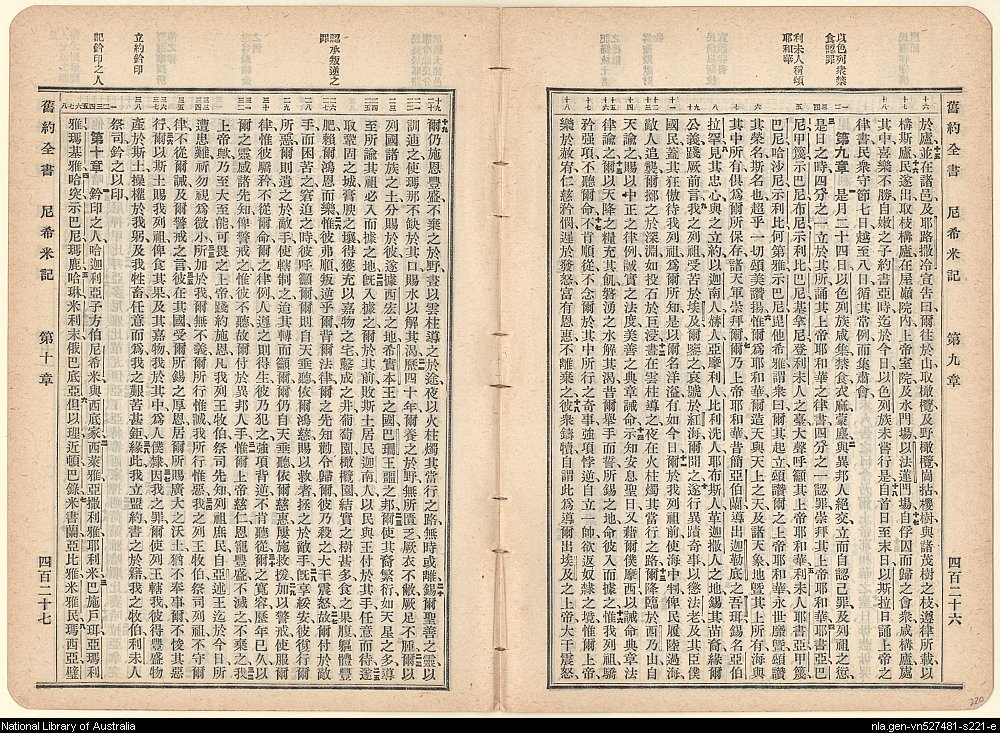 舊約全書 尼希米記 第九章 四百二十六
以色列衆禁食認罪
利未人稱頌耶和華
於廬並在諸邑及耶路撒冷宣告曰爾往於山取橄欖及野橄欖崗拈櫻樹與諸茂樹之枝遵律所載以
構斯廬民遂出取枝構廬在屋巔院內上帝室院及水門場以法蓮門場自俘囚而歸之會衆咸構廬處
其中喜樂不勝自嫩之子約書亞時迄於今日以色列族未嘗行是自首日至末日以斯拉日誦上帝之
律書民衆守節七日越至八日循其常例而集肅會
第九章 是月二十四日以色列族咸集禁食衣麻蒙塵與異邦人絕交立而自認己罪及列祖之愆
是日之時四分之一立於其所誦其上帝耶和華之律書四分之一認罪崇拜其上帝耶和華耶書亞巴
尼甲篾示巴尼布尼示利比巴尼基拿尼登利未人之臺大聲呼籲其上帝耶和華利未人耶書亞甲篾
巴尼哈沙尼示利比何第雅示巴尼毘他希雅謂衆曰爾其起立頌讚爾之上帝耶和華永世靡曁頌讚
其榮名斯名也超乎一切頌美讚揚惟爾爲耶和華爾造天與天上之天及諸天象地曁其上所有海與
其中所有俱爲爾所保存諸天軍崇拜爾爾乃上帝耶和華昔簡亞伯蘭導出迦勒底之吾珥錫名亞伯
拉罕見其忠心與之立約以迦南人赫人亞摩利人比利洗人耶布斯人革迦撒人之地錫其苗裔緣爾
公義踐厥前言我列祖受苦於埃及爾鑒之哀號於紅海爾聞之遂行異蹟奇事以懲法老及其臣僕
國民蓋其狂傲待我列祖爲爾所知是以爾名洋溢有如今日爾於我列祖前使海中判俾民履陸過海
敵人追襲爾擲之於深淵如投石於巨浸晝在雲柱導之夜在火柱燭其當行之路爾降臨於西乃山自
天諭之賜以中正之律例誠實之法度美善之典章誡命示知安息聖日又藉爾僕摩西以誡命典章法
度諭之爾以天降之糧充其飢磐湧之水解其渴昔爾舉手而誓所錫之地命彼入而據之惟我列祖驕
矜強項不聽爾命不肯順從不念爾於其中所行之奇事強項悖逆自立一帥欲返奴隸之境惟爾上帝
樂於赦宥仁慈矜憫遲於發怒富有恩惠不離棄之彼衆鑄犢自謂此爲導爾出埃及之上帝大干震怒
認承叛逆之罪
立約鈐印
記鈐印之人
爾仍施恩豐盛不棄之於野晝以雲柱導之於途夜以火柱燭其當行之路無時或離錫爾聖善之靈以
訓迪之使瑪那不缺於其口賜水以解其渴歷四十年爾養之於野無所匱乏厥衣不敝厥足不腫爾以
列國諸族之土分賜於彼遂據西宏之地希實本王之國巴珊王噩之邦爾使其裔繁衍如天星之多導
至所諭其祖必入而據之地旣入據之爾於其前敗斯土居民迦南人以民與王付於其手任意而待遂
取鞏固之城膏腴之壤得獲充以嘉物之宅鑿成之井葡萄園橄欖園結實之樹甚多食之果腹軀體豐
肥賴爾鴻恩而樂惟彼弗順叛逆乎爾背爾法律爾之先知勸令歸爾彼乃殺之大干震怒故爾付於敵
手而困苦之窘迫之時彼呼籲爾則自天垂聽依爾鴻慈賜以救者拯之於敵手旣享綏安彼復行爾
所惡爾則遺之於敵手使轄制之迨其轉而籲爾爾仍自天垂聽依爾慈惠屢施救援加以警戒使服爾
律惟彼驕矜不從爾命爾之律例人遵之則得生彼乃犯之強項背逆不肯聽從爾之寬容歷年已久以
爾之靈感諸先知俾警戒之惟彼不聽故爾付我於異邦人手惟爾上帝慈仁恩寵豐盛不滅之不棄之我
上帝歟爾乃至大至能可畏之上帝踐約施恩凡我列王牧伯祭司先知列祖庶民自亞述王迄於今日所
遭患難祈勿視爲微小所加於我爾無不義爾所行惟誠我所行惟惡我之列王牧伯祭司列祖不守爾
律不從爾誡及爾警戒之言彼在其國受爾所錫之厚恩居爾所賜廣大之沃土猶不奉事爾不悛其惡
行爾以斯土賜我列祖俾食其果及其嘉物我於其中爲人僕隸因我之罪爾使列王轄我彼得豐盛物
產於斯土操權於我躬及我牲畜任意而爲我之艱苦甚鉅緣此我立盟約書之於籍我之牧伯利未人
祭司鈐之以印
第十章 鈐印之人哈迦利亞子方伯尼希米與西底家西萊雅亞撒利雅耶利米巴施戶珥亞瑪利
雅瑪基雅哈突示巴尼瑪鹿哈琳米利末俄巴底亞但以理近頓巴錄米書蘭亞比雅米雅民瑪西亞璧
舊約全書 尼希米記 第十章 四百二十七
220
National Library of Australia
nla.gen-vn527481-s221-e